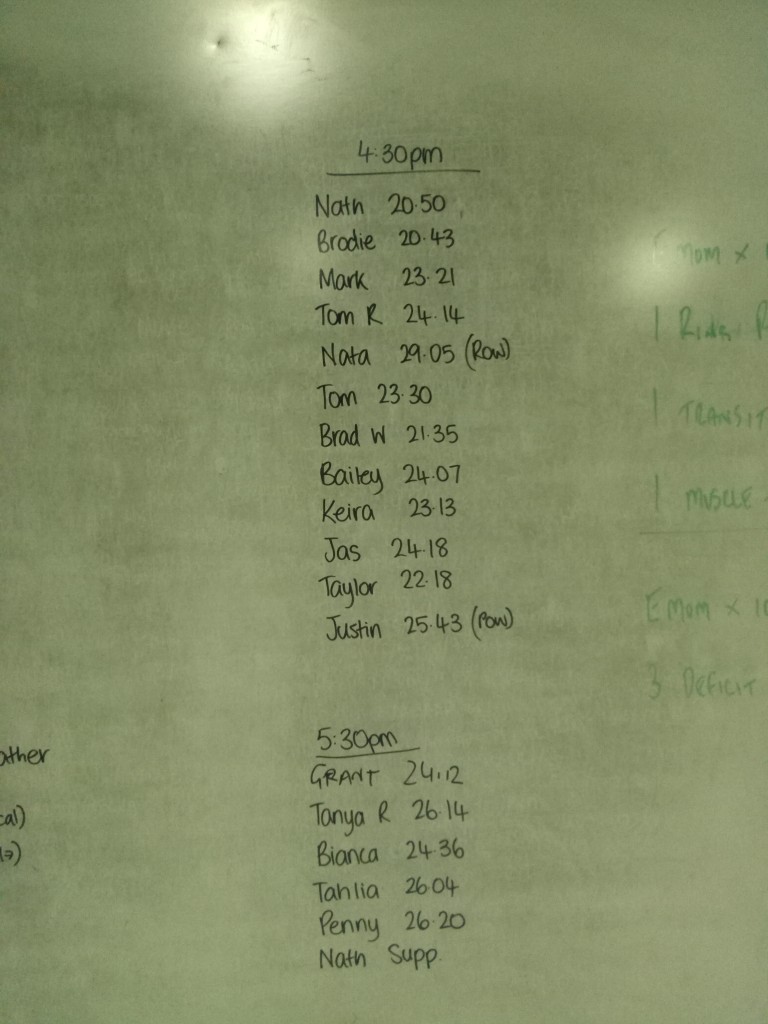 4:30pm
Nath 20.50
Brodie 20.43
Mark 23.21
Tom R 24.14
Nata 29.05 (Row)
Tom 23.30
Brad W 21.35
Bailey 24.07
Keira 23.13
Jas 24.18
Taylor 22.18
Justin 25.43 (Row)
5:30pm
GRANT 24.12
Tanya R 26.14
Bianca 24.36
Tahlia 26.04
Penny 26.20
Nath Supp.
ather
cal)
EMOM X 1
1 RING
1 TRANSIT
1 MUSCLE -
EMOM X 10
3 DEFICIT